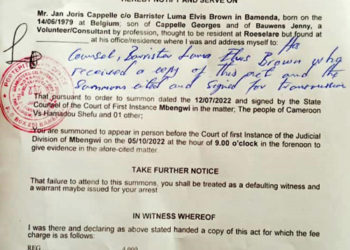 HEREBY NOTIFY AND SERVE ON
Mr. Jan Joris Cappelle c/o Barrister Luma Elvis Brown in Bamenda, born on
14/06/1979 at Belgium, son of Cappelle Georges and of Bauwens Jenny, a
Volunteer/Consultant by profession, thought to be resident at Roeselare but found at
at his office/residence where I was and address myself to: His
Counsel, Barrister Luma Elvis Brown who
received a copy of this act and the
summons cited and signed for transmission
That pursuant to order to summon dated the 12/07/2022 and signed by the State
Counsel of the Court of First Instance Mbengwi in the matter; The people of Cameroon
Vs Hamadou Shefu and 01 other;
You are summoned to appear in person before the Court of first Instance of the Judicial
Division of Mbengwi on the 05/10/2022 at the hour of 9.00 o'clock in the forenoon to
give evidence in the afore-cited matter
TAKE FURTHER NOTICE
That failure to attend to this summons, you shall be treated as a defaulting witness and
a warrant maybe issued for your arrest
IN WITNESS WHEREOF
I was there and declaring as above stated handed a copy of this act for which the fee
charge is as follows: